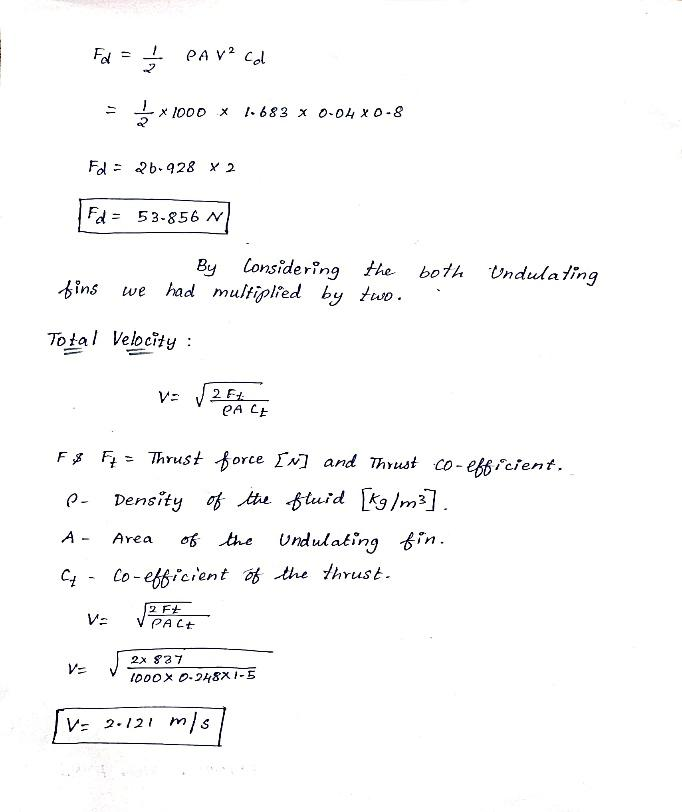 Fd = 1/2 ρAV² Cd
= 1/2 × 1000 × 1.683 × 0.04 × 0.8
Fd = 26.928 × 2
Fd = 53.856 N
By Considering the both Undulating
fins we had multiplied by two.
Total Velocity :
V= √(2Ft / ρA Ct)
F & Ft = Thrust force [N] and Thrust co-efficient.
ρ- Density of the fluid [kg/m³].
A - Area of the Undulating fin.
Ct - Co-efficient of the thrust.
V= √(2Ft / ρACt)
V= √(2×837 / 1000×0.248×1.5)
V= 2.121 m/s